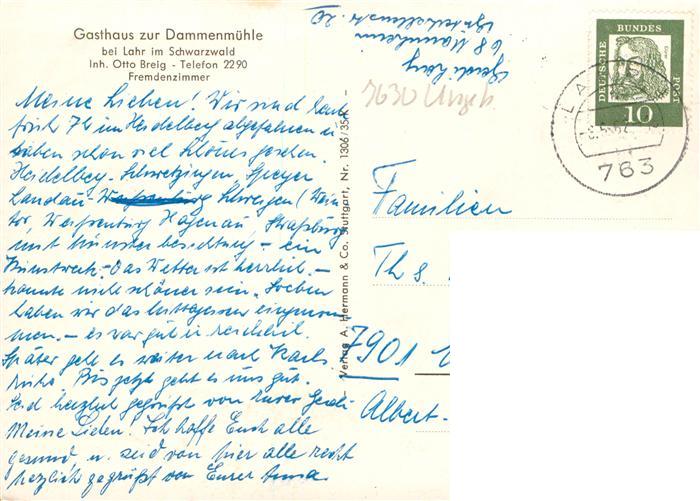 Gasthaus zur Dammenmühle
bei Lahr im Schwarzwald
Inh. Otto Breig - Telefon 2290
Fremdenzimmer
Meine Lieben! Wir sind heute
früh 7h in Heidelberg abgefahren u
haben schon viel Schönes gesehen.
Heidelbg - Schwetzingen, Speyer
Landau - Schweigen (Wein
tor, Weissenburg Hagenau, Straßburg
mit Münster besichtung - ein
Kunstwerk. - Das Wetter ist herrlich. -
könnte nicht schöner sein. Soeben
haben wir das Mittagessen eingenom
men. - es war gut u. reichlich.
Später geht es weiter nach Karls
ruhe. Bis jetzt geht es uns gut.
Seid herzlich gegrüßt von Eurer Gerdi
Meine Lieben! Ich hoffe Euch alle
gesund u. seid von hier alle recht
herzlich gegrüßt von Eurer Anna
Verlag A. Hermann & Co. Stuttgart, Nr. 1306/35
68 Mannheim
20
7630
DEUTSCHE
BUNDES
POST
10
763
Familien
Th s.
7901
Albert-